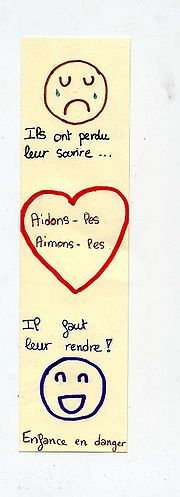 Ils ont perdu
leur sourire ...
Aidons-les
Aimons-les
Il faut
leur rendre !
Enfance en danger